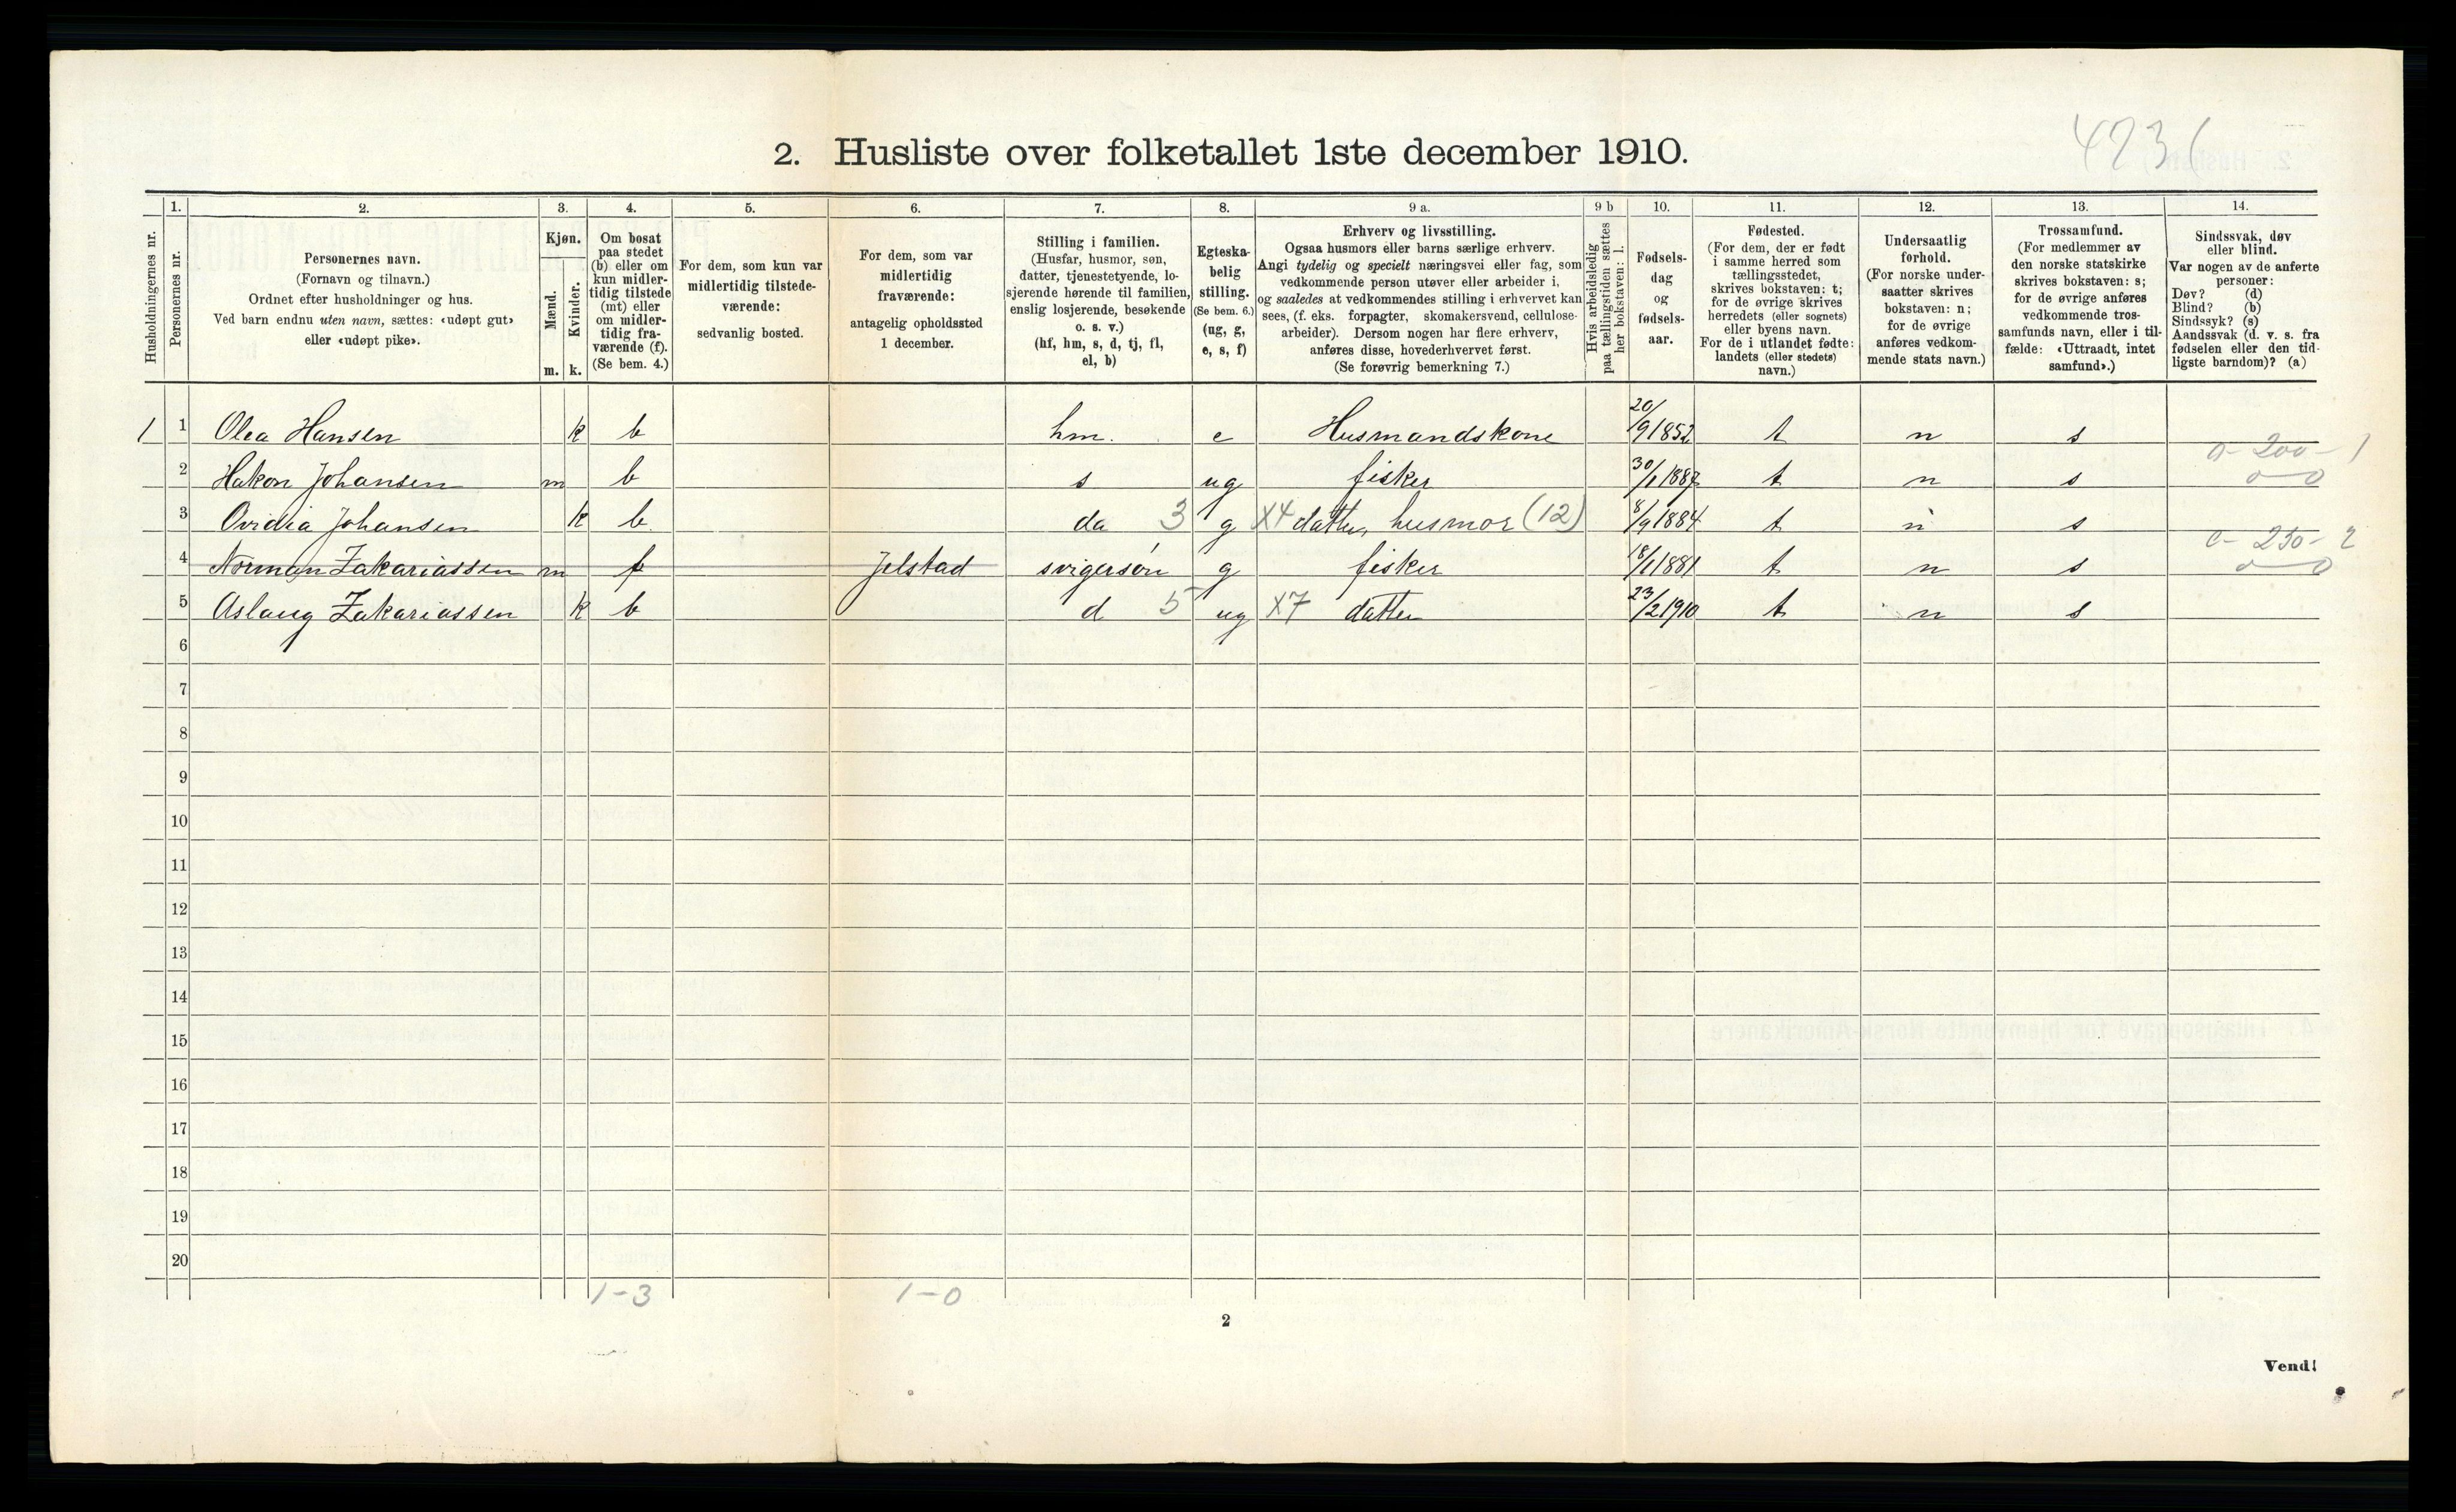 4236
2. Husliste over folketallet 1ste december 1910.
Husholdningernes nr.
1. Personernes nr.
2. Personernes navn.
(Fornavn og tilnavn.)
Ordnet efter husholdninger og hus.
Ved barn endnu uten navn, sættes: «udøpt gut»
eller «udøpt pike».
3. Kjøn.
Mænd. m.
Kvinder. k.
4. Om bosat
paa stedet
(b) eller om
kun midler-
tidig tilstede
(mt) eller
om midler-
tidig fra-
værende (f).
(Se bem. 4.)
5. For dem, som kun var
midlertidig tilstede-
værende:
sedvanlig bosted.
6. For dem, som var
midlertidig
fraværende:
antagelig opholdssted
1 december.
7. Stilling i familien.
(Husfar, husmor, søn,
datter, tjenestetyende, lo-
sjerende hørende til familien,
enslig losjerende, besøkende
o. s. v.)
(hf, hm, s, d, tj, fl,
el, b)
8. Egteska-
belig
stilling.
(Se bem. 6.)
(ug, g,
e, s, f)
9 a. Erhverv og livsstilling.
Ogsaa husmors eller barns særlige erhverv.
Angi tydelig og specielt næringsvei eller fag, som
vedkommende person utøver eller arbeider i,
og saaledes at vedkommendes stilling i erhvervet kan
sees, (f. eks. forpagter, skomakersvend, cellulose-
arbeider). Dersom nogen har flere erhverv,
anføres disse, hovederhvervet først.
(Se forøvrig bemerkning 7.)
9 b Hvis arbeidsledig
paa tællingstiden sættes
her bokstaven: l.
10. Fødsels-
dag
og
fødsels-
aar.
11. Fødested.
(For dem, der er født
i samme herred som
tællingsstedet,
skrives bokstaven: t;
for de øvrige skrives
herredets (eller sognets)
eller byens navn.
For de i utlandet fødte:
landets (eller stedets)
navn.)
12. Undersaatlig
forhold.
(For norske under-
saatter skrives
bokstaven: n;
for de øvrige
anføres vedkom-
mende stats navn.)
13. Trossamfund.
(For medlemmer av
den norske statskirke
skrives bokstaven: s;
for de øvrige anføres
vedkommende tros-
samfunds navn, eller i til-
fælde: «Uttraadt, intet
samfund».)
14. Sindssvak, døv
eller blind.
Var nogen av de anførte
personer:
Døv? (d)
Blind? (b)
Sindssyk? (s)
Aandssvak (d. v. s. fra
fødselen eller den tid-
ligste barndom)? (a)
1 1 Olea Hansen k b hm. e Husmandskone 20/9 1852 t n s
0-200-1
2 Hakon Johansen m b s ug fisker 30/1 1887 t n s 0-0
3 Ovidia Johansen k b da 3 g X4 datter, husmor (12) 8/9 1884 t n s
0-250-2
4 Norman Zakariassen m f Jelstad svigersøn g fisker 18/1 1881 t n s 0-0
5 Aslaug Zakariassen k b d 5 ug X7 datter 23/2 1910 t n s
6
7
8
9
10
11
12
13
14
15
16
17
18
19
20
1-3 1-0
2
Vend!